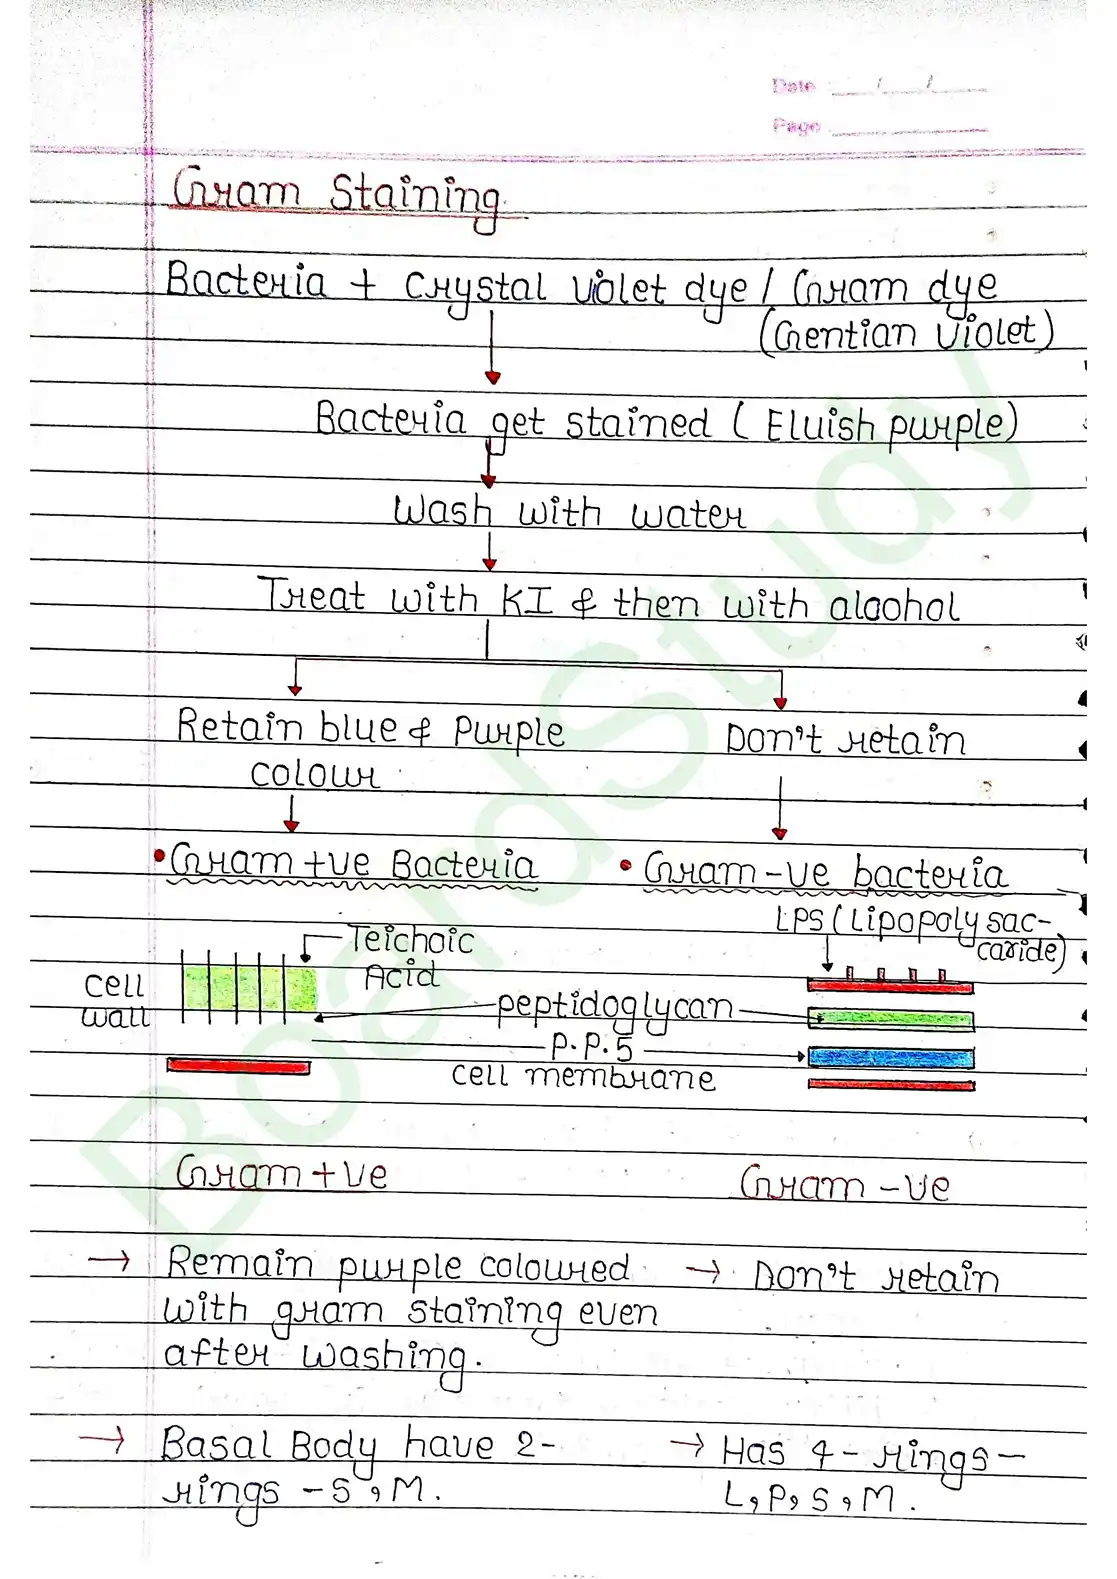 Date __/__/__
Page
Gram Staining
Bacteria + crystal violet dye / Gram dye
(Gentian Violet)
Bacteria get stained (Eluish purple)
Wash with water
Treat with KI & then with alcohol
Retain blue & Purple
colour
Don't retain
• Gram +ve Bacteria
• Gram -ve bacteria
LPS (Lipopoly sac-
caride)
Teichoic
Acid
cell
wall
peptidoglycan
P.P.5
cell membrane
Gram +ve
Gram -ve
→ Remain purple coloured
with gram staining even
after washing.
→ Don't retain
→ Basal Body have 2-
rings - S, M.
→ Has 4- rings -
L, P, S, M.
BoardStudy